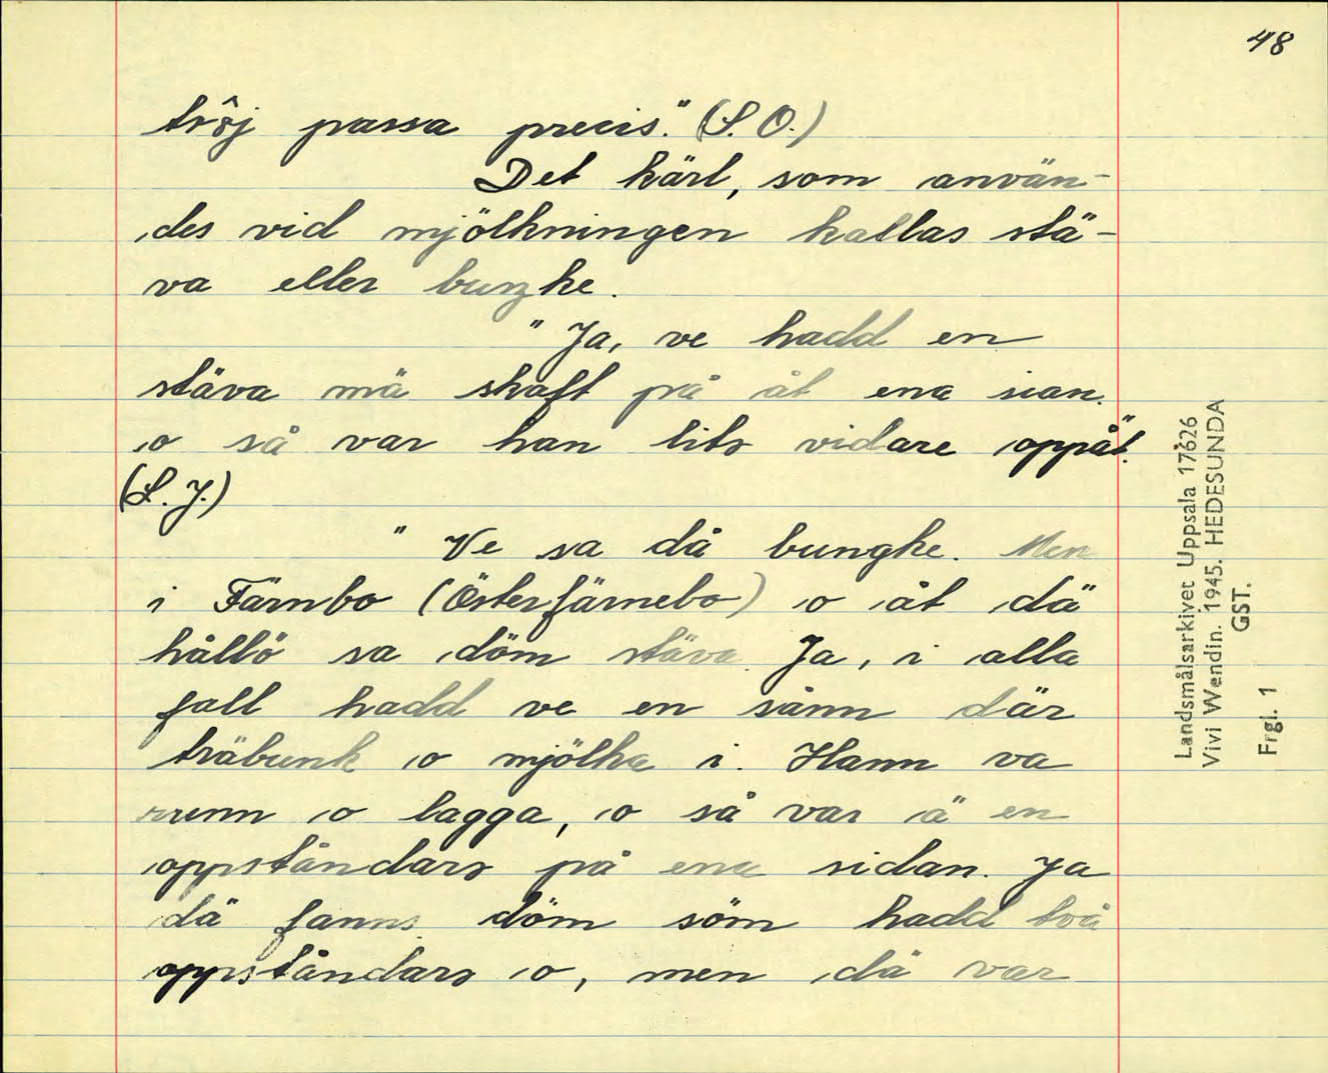 48
trôj passa precis." (S. O.)
Det kärl, som använ-
des vid mjölkningen kallas stä-
va eller bunghe.
"Ja, ve hadd en
stäva mä skaft på åt ena sian.
o så var han lits vidare oppåt."
(S. J.)
"Ve sa då bunghe. Men
i Färnbo (Österfärnebo) o åt dä
hållö sa döm stäva. Ja, i alla
fall hadd ve en sånn där
träbunk o mjölka i. Hann va
runn o lagga, o så var ä en
oppståndars på ena sidan. Ja
dä fanns döm söm hadd två
oppståndars o, men dä var
Landsmålsarkivet Uppsala 17626
Vivi Wendin. 1945. HEDESUNDA
GST.
Frgl. 1